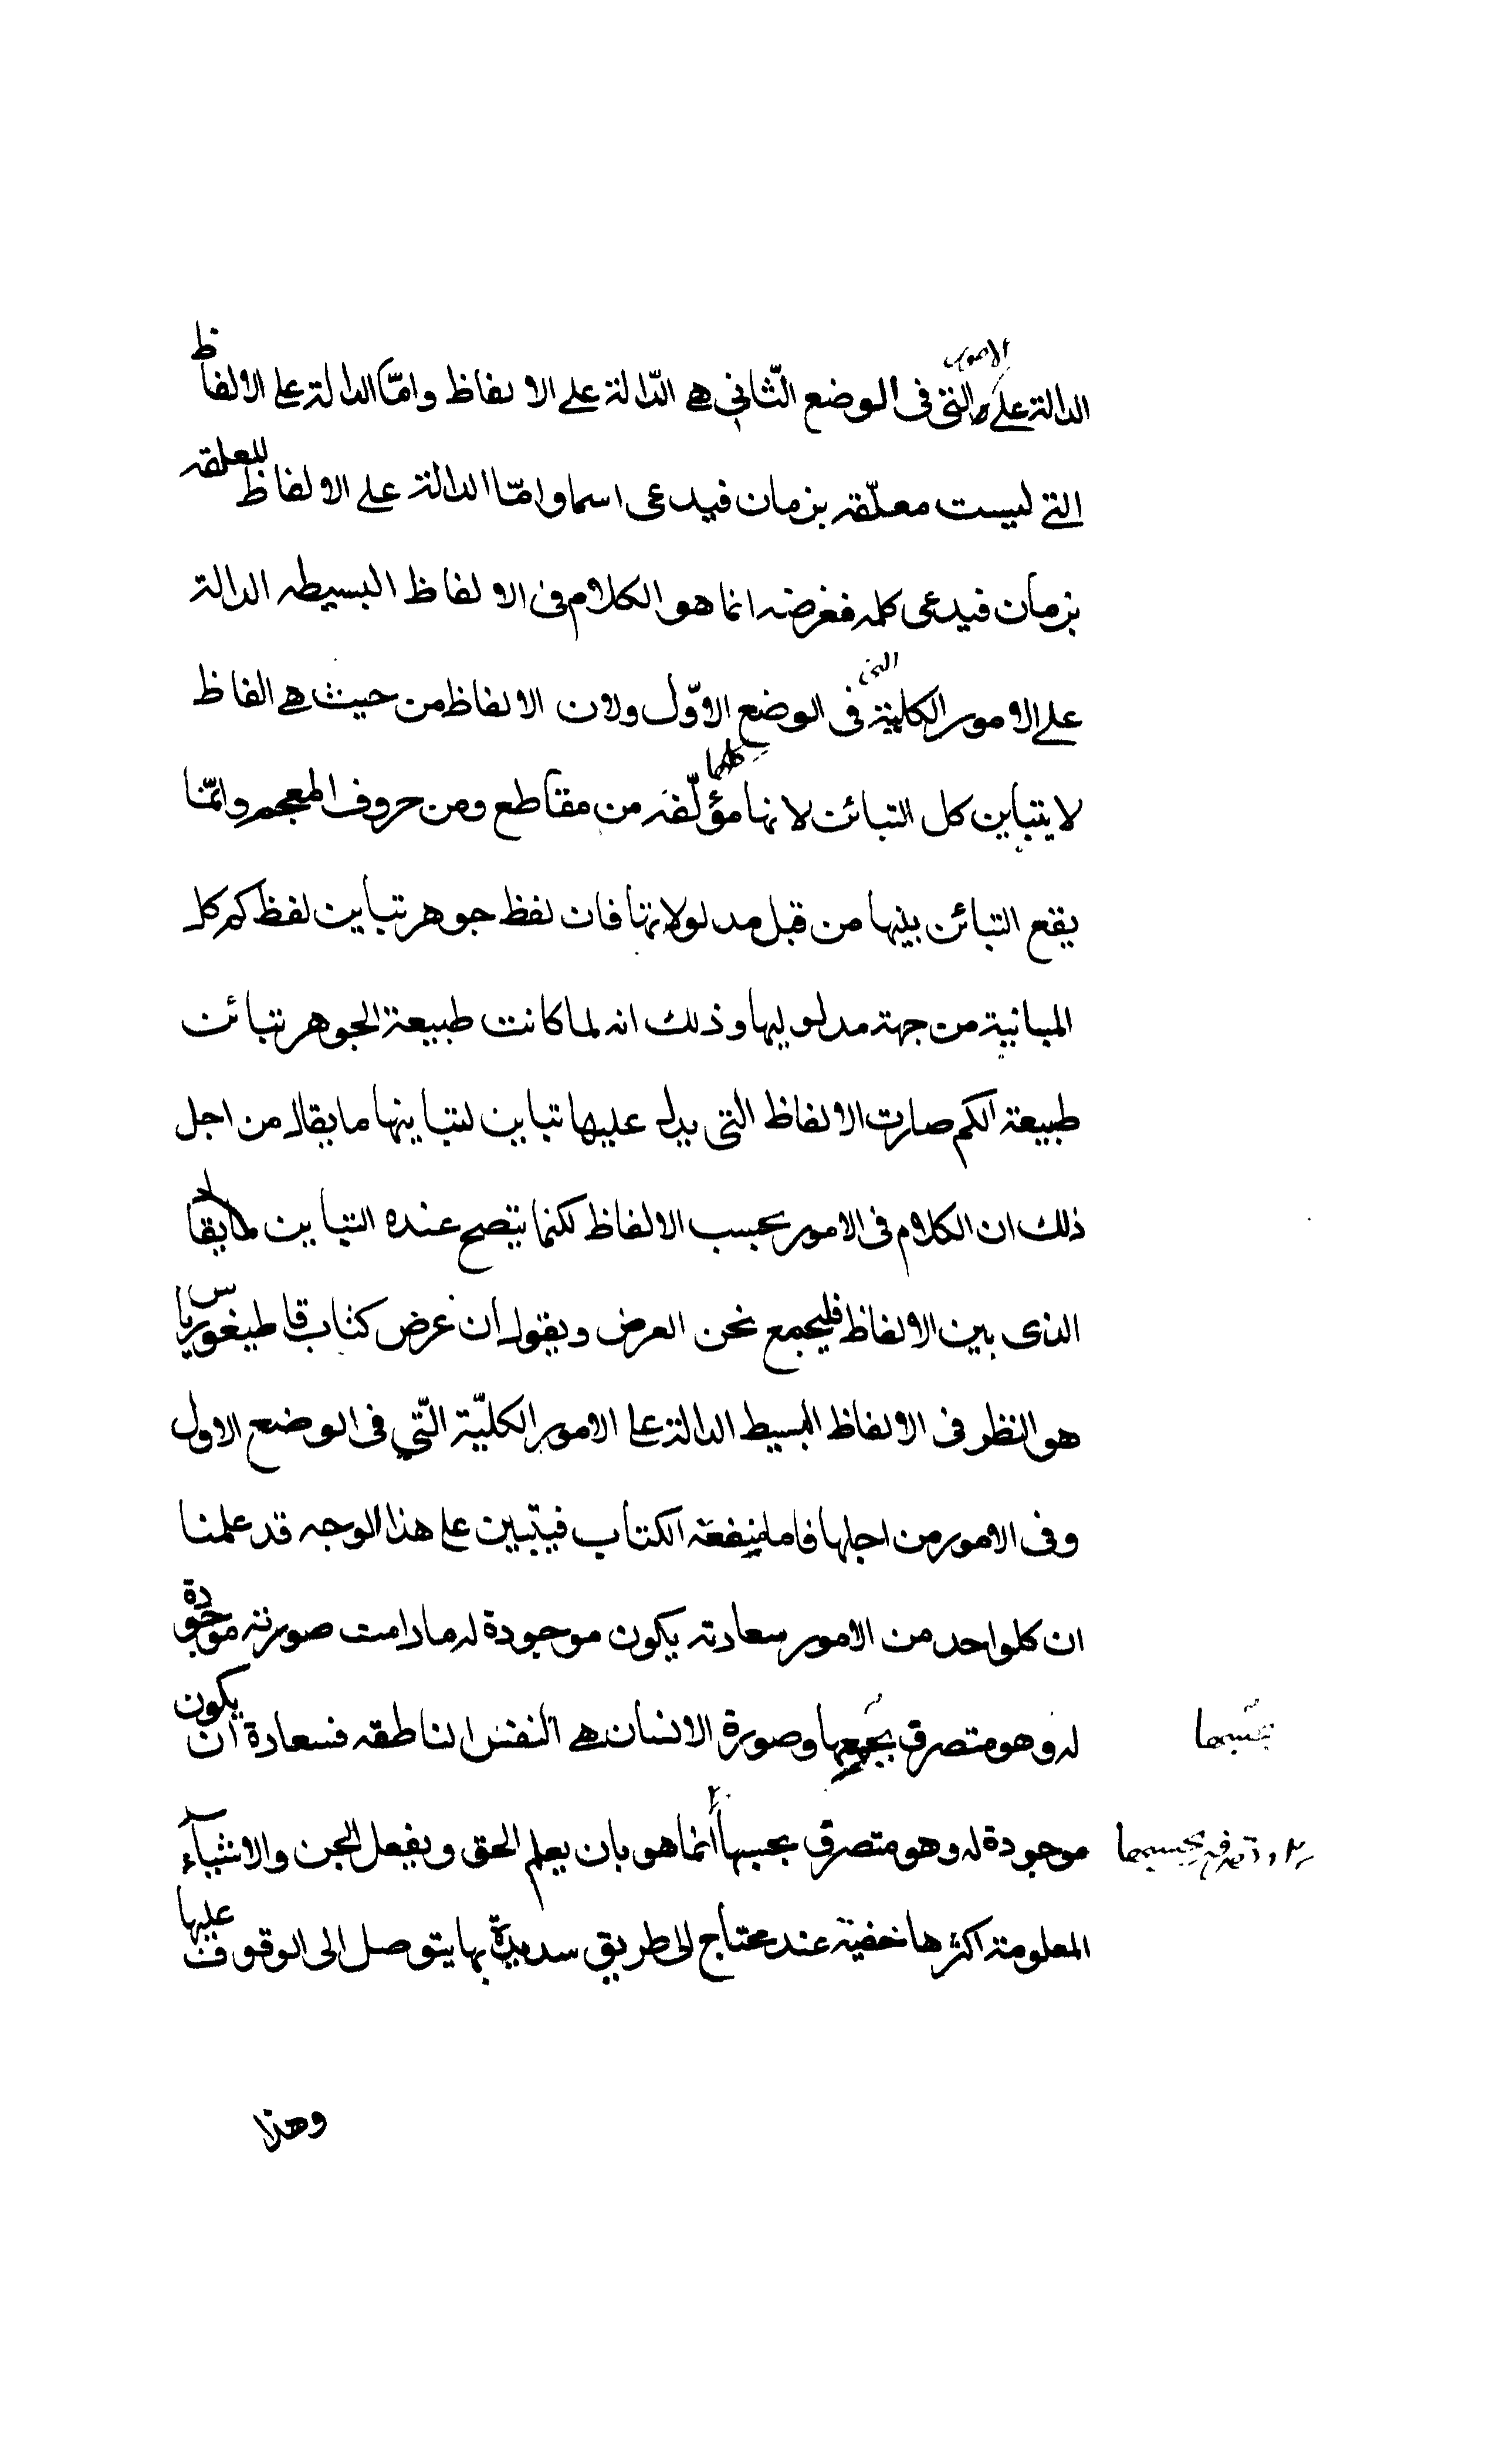 الامور
الدالة على التى فى الوضع الثّانى هى الدّالة على الالفاظ وامّا الدالة على الالفاظ
التى ليست معلّقه بزمان فيدعى اسما وامّا الدالة على الالفاظ المعلقه
بزمان فيدعى كلمه فغرضه انما هو الكلام فى الالفاظ البسيطه الدالة
التى
على الامور الكلية فى الوضع الاوّل ولان الالفاظ من حيث هى الفاظ
كلها
لا يتباين كل التبائن لانها مؤلّفه من مقاطع ومن حروف المعجم وانّما
يقع التبائن بينها من قبل مدلولاتها فان لفظ جوهر تباين لفظ كم كل
المباينة من جهة مدلوليها وذلك انه لما كانت طبيعة الجوهر تبائن
طبيعة الكم صارت الالفاظ التى يدل عليها تباين لتباينها ما يقال من اجل
ذلك ان الكلام فى الامور بحسب الالفاظ لكنما يتصح عنده التباين لما يقال
الذى بين الالفاظ فليجمع نحن العرض ويقول ان غرض كتاب قاطيغورياس
هو النظر فى الالفاظ البسيط الدالة على الامور الكليّة التّى فى الوضع الاول
وفى الامور من اجلها فاما منفعة الكتاب فيتبين على هذا الوجه قد علمنا
ان كلواحد من الامور سعادته يكون موجودة له مادامت صورته موجودة
له وهو متصرف بجميعها وصورة الانسان هى النفس الناطقه فسعادة ان يكون
بحسبها
موجودة له وهو متصرف بحسبها انما هو بان يعلم الحق ويفعل الجن والاشياء
بحسبها
المعلومة اكثرها خفية عند محتاج الى طريق سديدة بها يتوصل الى الوقوف عليها
وهذا